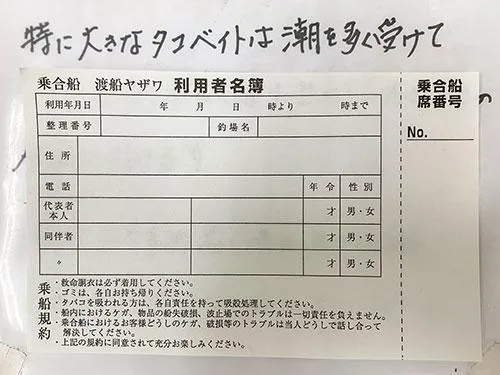 特に大きなタコベイトは潮を多く受けて
乗合船 渡船ヤザワ 利用者名簿
利用年月日 年 月 日 時より 時まで
整理番号 釣場名
住所
電話 年令 性別
代表者本人 才 男・女
同伴者 才 男・女
〃 才 男・女
乗船規約
・救命胴衣は必ず着用してください。
・ゴミは、各自お持ち帰りください。
・タバコを吸われる方は、各自責任を持って吸殻処理してください。
・船内におけるケガ、物品の紛失破損、波止場でのトラブルは一切責任を負えません。
・乗合船におけるお客様どうしのケガ、破損等のトラブルは当人どうしで話し合って
解決してください。
・上記の規約に同意されて充分お楽しみください。
乗合船
席番号
No.